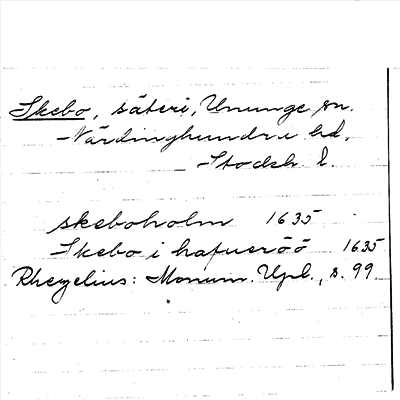 Skebo, säteri, Ununge sn.
Närdinghundra hd,
Stockh. l.
skeboholm 1635
Skebo i hafueröö 1635
Rhezelius: Monum. Upl., s. 99